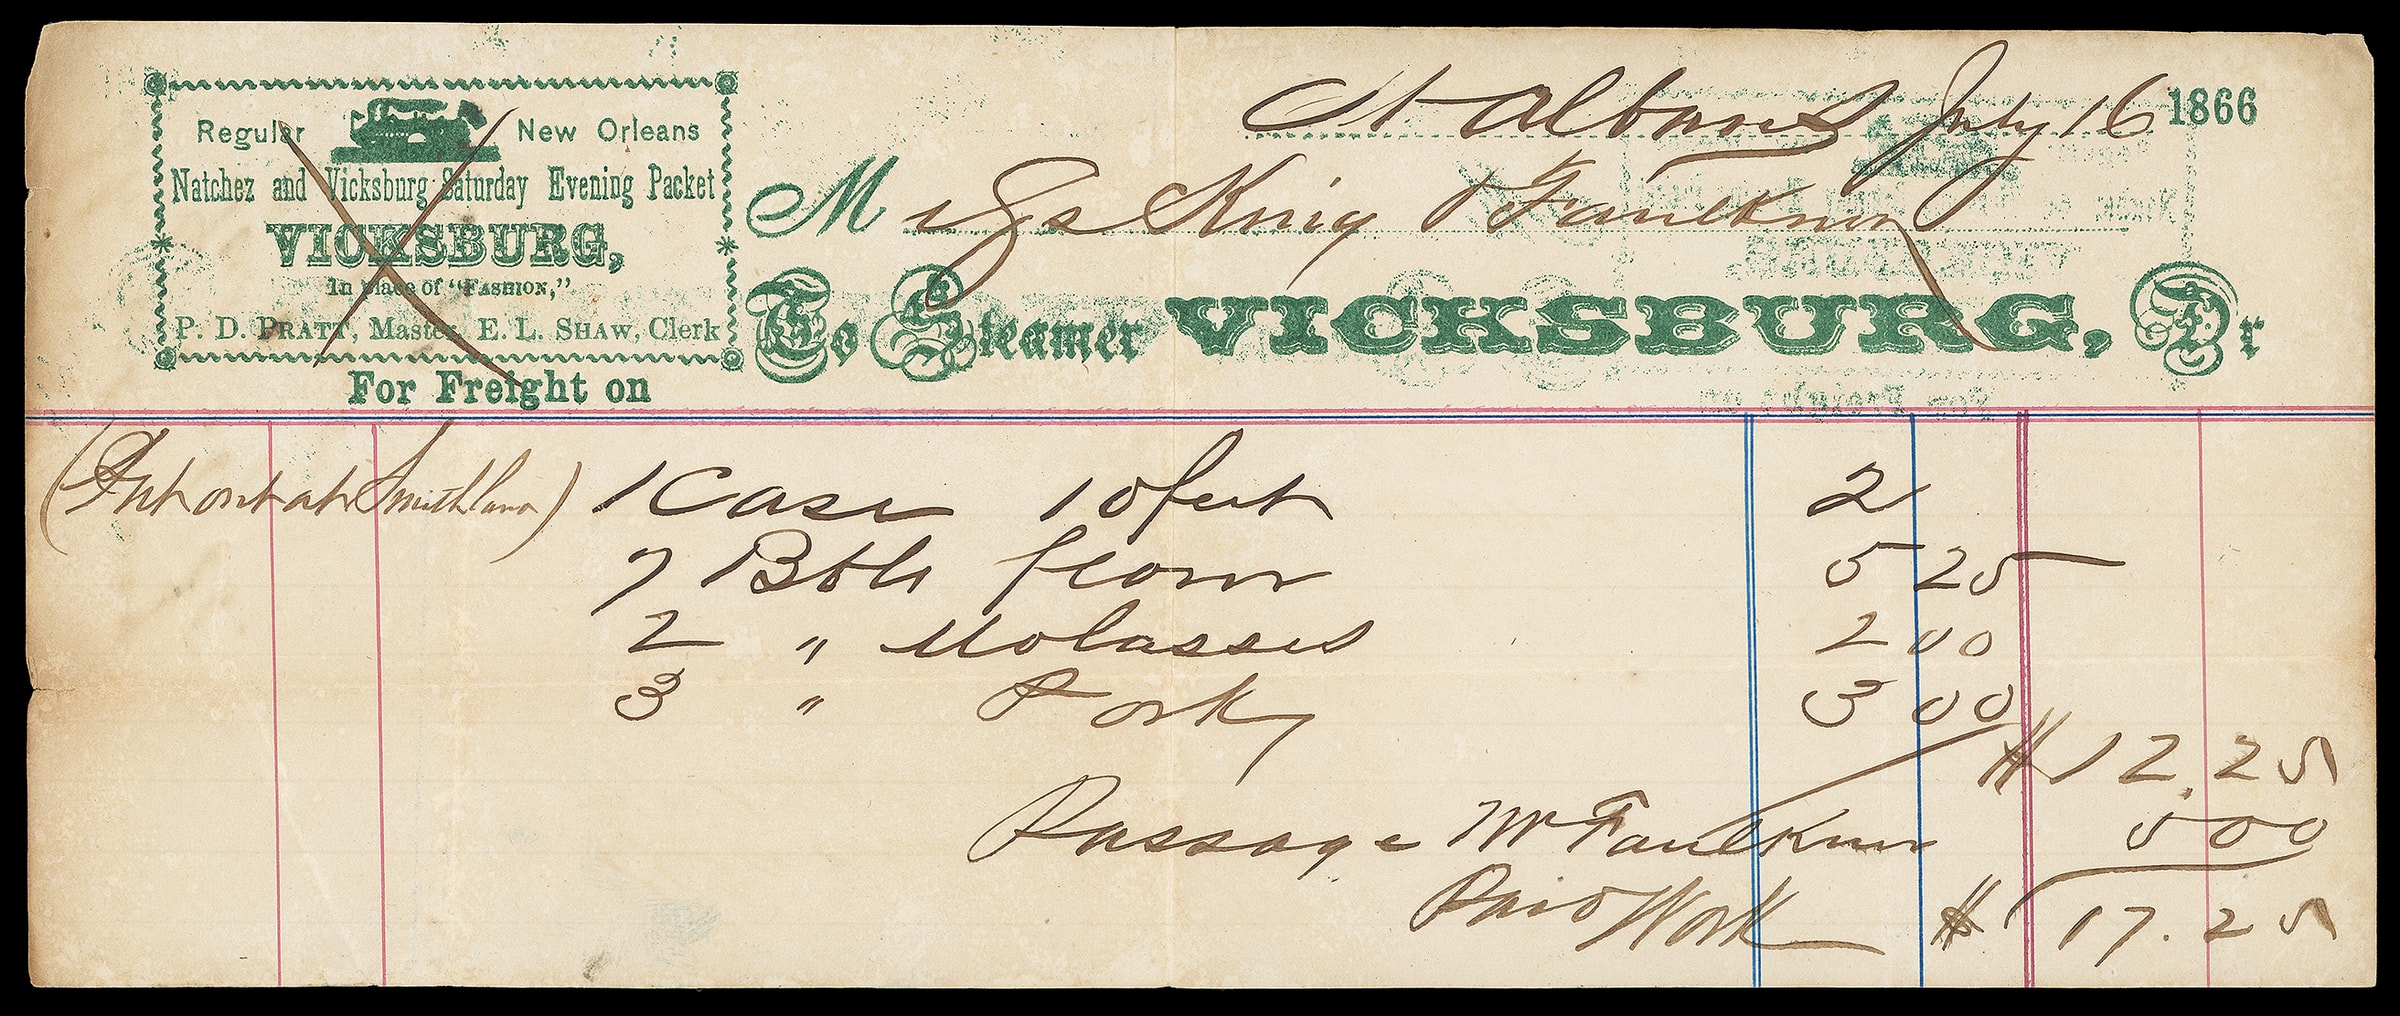 Regular New Orleans
Natchez and Vicksburg Saturday Evening Packet
VICKSBURG,
In place of "FASHION,"
P. D. PRATT, Master, E. L. SHAW, Clerk
For Freight on
St Albans July 16 1866
M King & Faulkner
To Steamer VICKSBURG, Dr
(Put out at Smithland) 1 Case 10 feet 2
7 Bbls flour 5 25
2 " Molasses 2 00
3 " Pork 3 00
$12.25
Passage Mr Faulkner 5 00
Paid Work $17.25